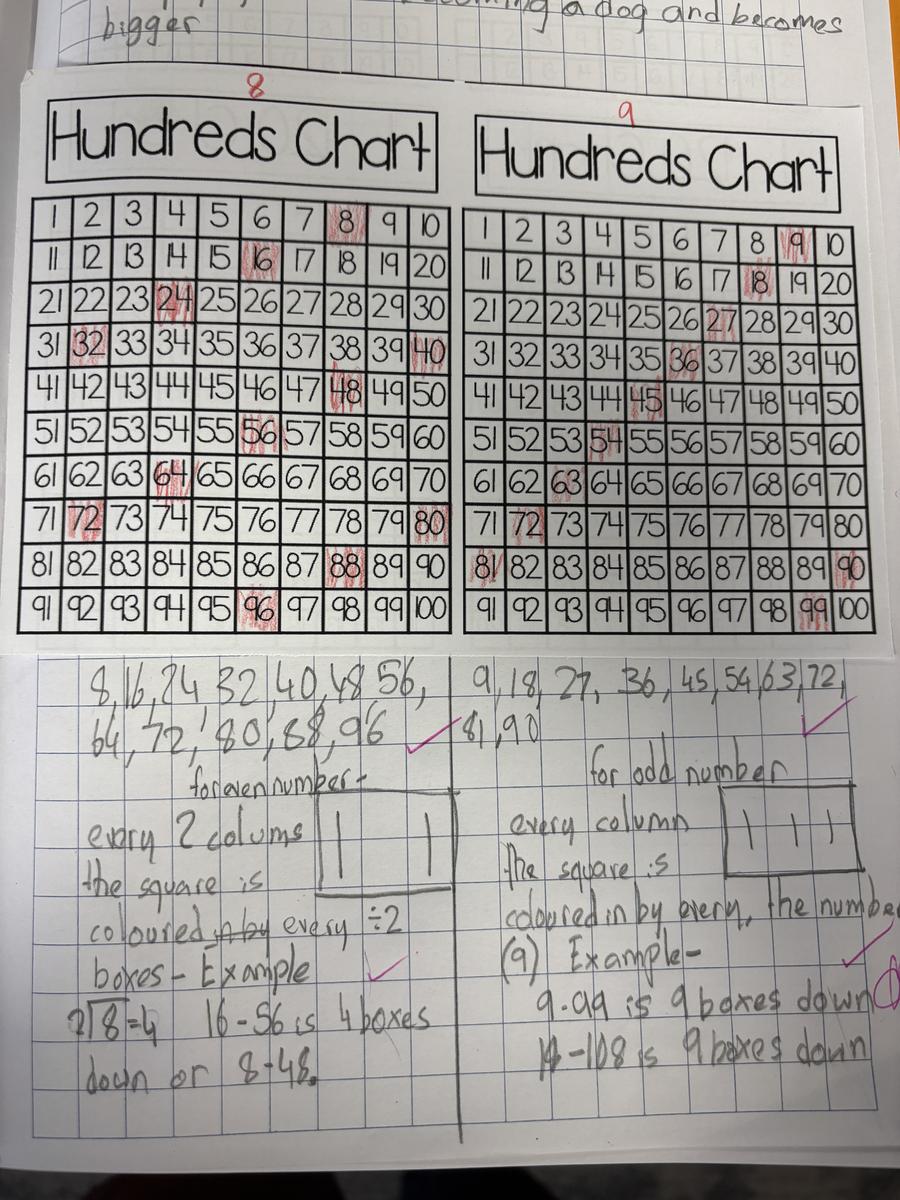 a dog and becomes
bigger
8
Hundreds Chart
1 2 3 4 5 6 7 8 9 10
11 12 13 14 15 16 17 18 19 20
21 22 23 24 25 26 27 28 29 30
31 32 33 34 35 36 37 38 39 40
41 42 43 44 45 46 47 48 49 50
51 52 53 54 55 56 57 58 59 60
61 62 63 64 65 66 67 68 69 70
71 72 73 74 75 76 77 78 79 80
81 82 83 84 85 86 87 88 89 90
91 92 93 94 95 96 97 98 99 100
8, 16, 24 32, 40, 48 56,
64, 72, 80, 88, 96
for even number-
every 2 colums
the square is
coloured in by every ÷2
boxes - Example
2√8=4 16-56 is 4 boxes
down or 8-48.
9
Hundreds Chart
1 2 3 4 5 6 7 8 9 10
11 12 13 14 15 16 17 18 19 20
21 22 23 24 25 26 27 28 29 30
31 32 33 34 35 36 37 38 39 40
41 42 43 44 45 46 47 48 49 50
51 52 53 54 55 56 57 58 59 60
61 62 63 64 65 66 67 68 69 70
71 72 73 74 75 76 77 78 79 80
81 82 83 84 85 86 87 88 89 90
91 92 93 94 95 96 97 98 99 100
9, 18, 27, 36, 45, 54, 63, 72,
81, 90
for odd number
every column
the square is
coloured in by every, the number
(9) Example-
9-99 is 9 boxes down
-108 is 9 boxes down